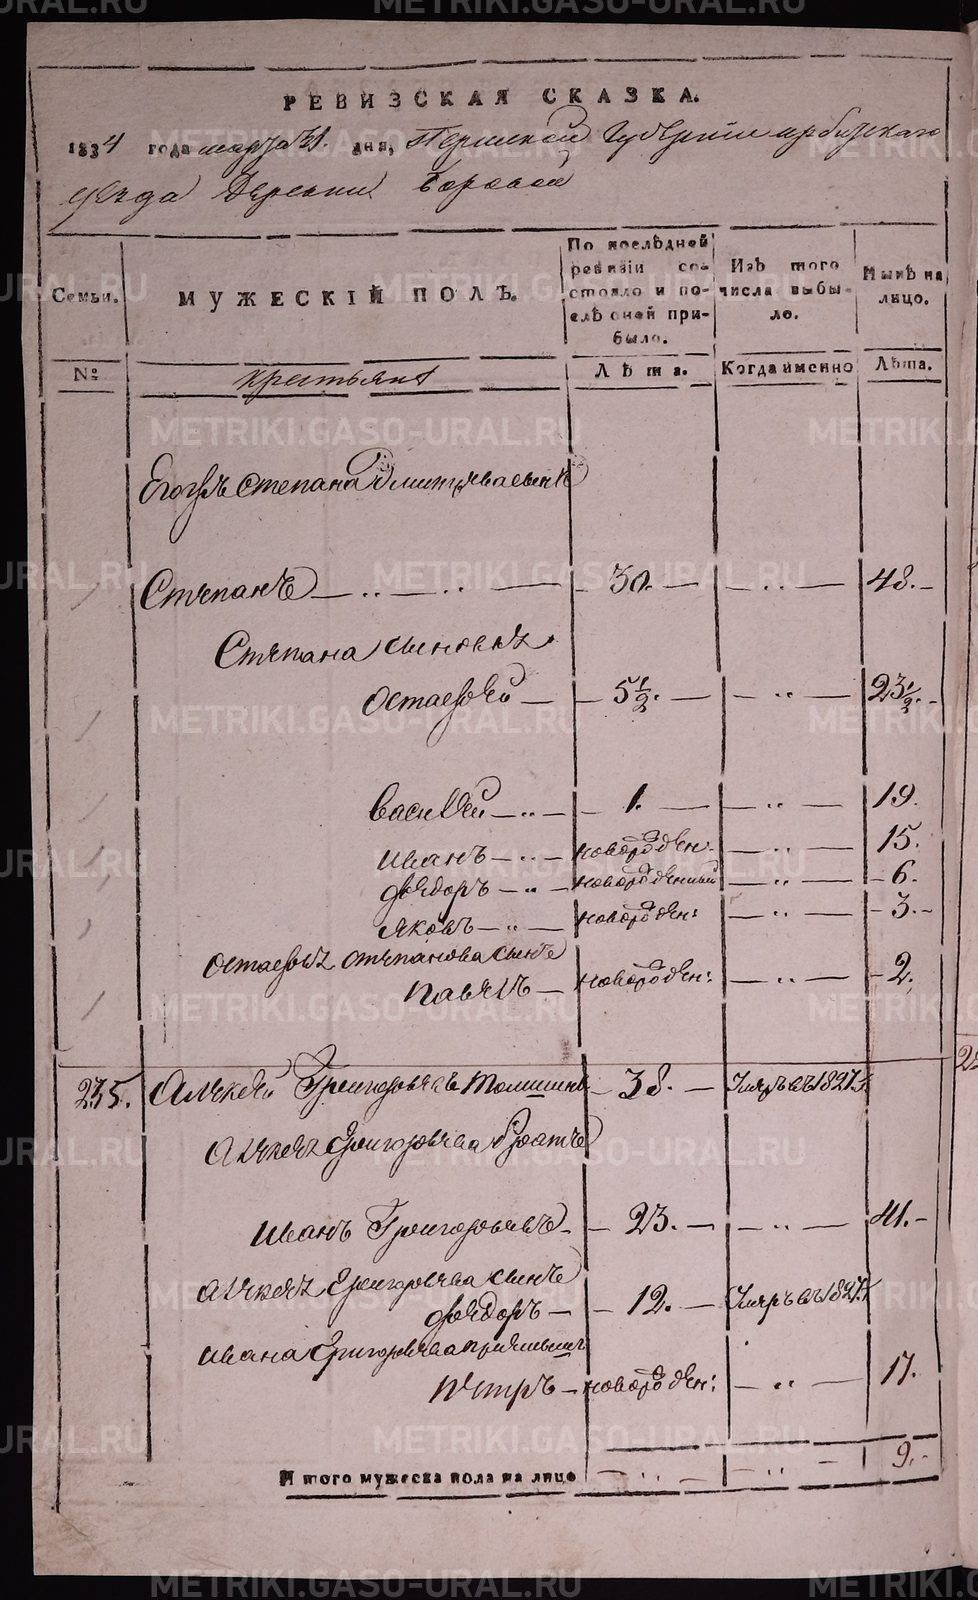 РЕВИЗСКАЯ СКАЗКА.
1834 года марта 31. дня, Пермской Губернии ирбитскаго
уезда Деревни Боровой
Семьи. МУЖЕСКІЙ ПОЛЪ. По послѣдней ревизіи состояло и послѣ оней прибыло. Изъ того числа выбыло. Нынѣ на лицо.
№ крестьяне Лѣта. Когда именно Лѣта.
Степана Дмитриева сынъ
Степанъ — 30. — 48.
Степана сыновья
Остаеѳей — 5½. — 23½.
Василей — 1. — 19.
Иванъ — новорожден. — 15.
Ѳедоръ — новорожденный — 6.
Яковъ — новорожден: — 3.
Остаеѳья степанова сынъ
Павелъ — новорожден: — 2.
235. Алексей Григорьевъ — 38. — Умръ въ 1827.
Алексея Григорьева братъ
Иванъ Григорьевъ — 23. — 41.
Алексея Григорьева сынъ
Ѳедоръ — 12. — Умръ въ 1827.
Ивана Григорьева приемышъ
Петръ — новорожден: — 17.
Итого мужеска пола на лицо — 9.
METRIKI.GASO-URAL.RU